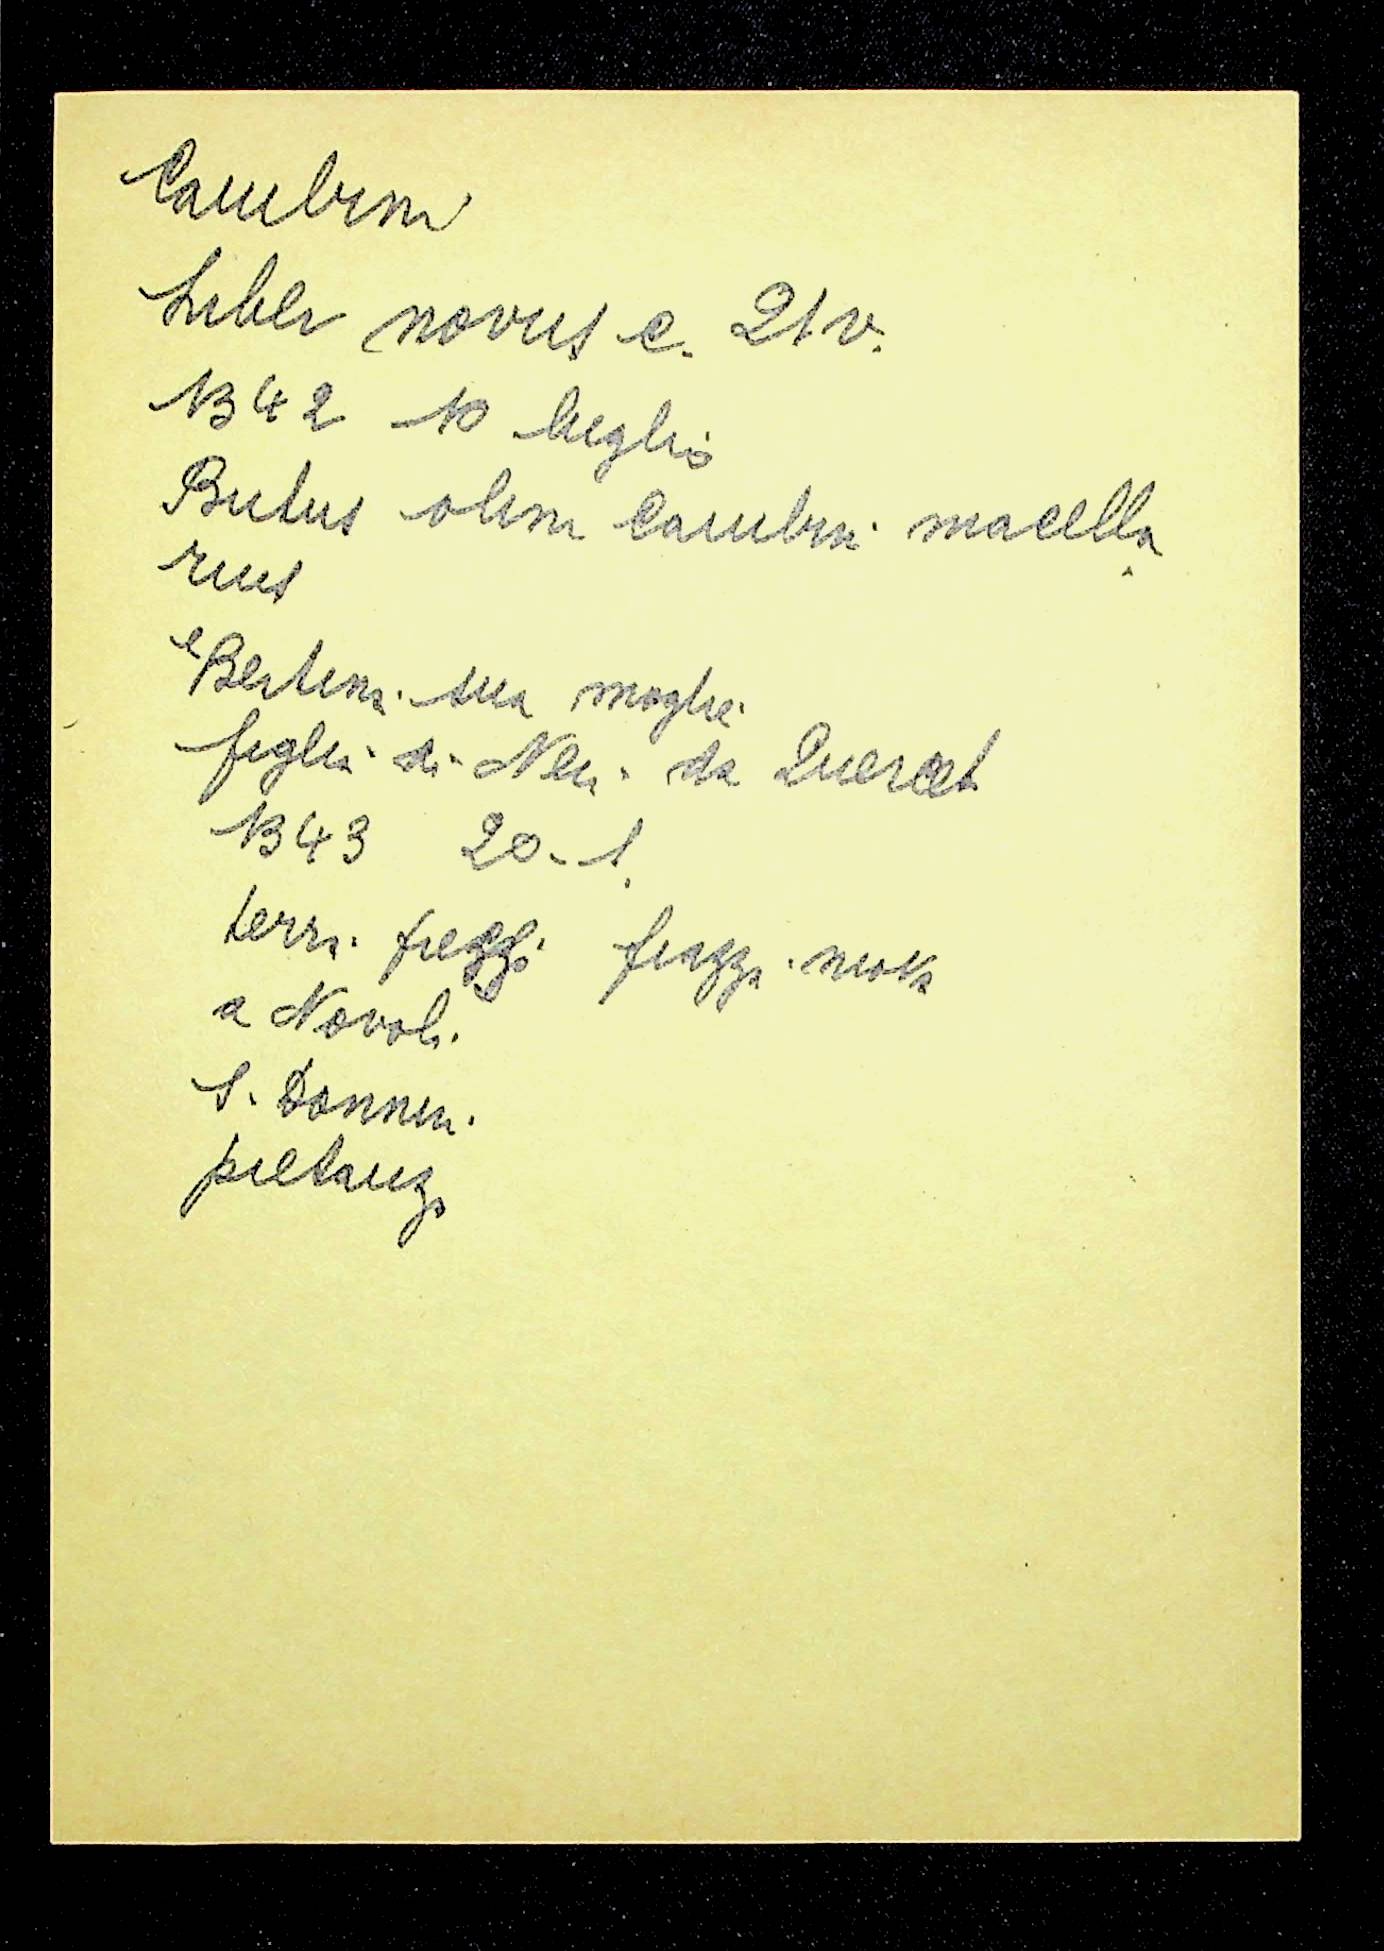 Cambini
Liber novus c. 21 v.
1342 10 luglio
Butus olim Cambini macella
rius
e Bertina sua moglie
figlia di Neri da Quercet
1343 20-1
terra
a Novoli
S. Donnin.
pietanza